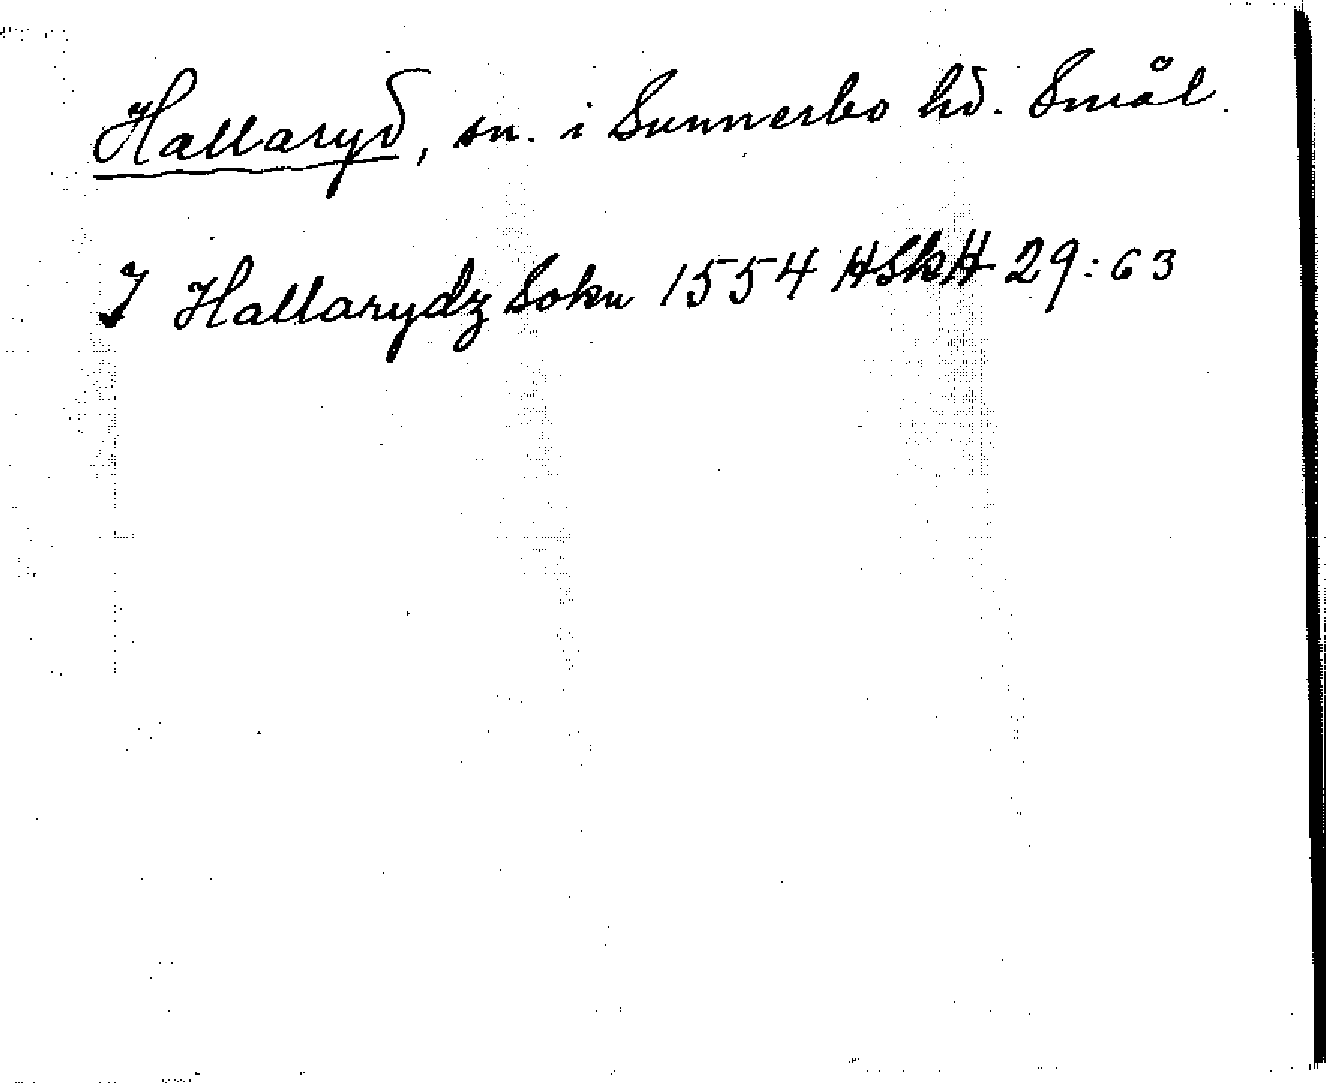 Hallaryd, sn. i Sunnerbo hd. Smål.
I Hallarydz Sokn 1554 HSkH 29:63